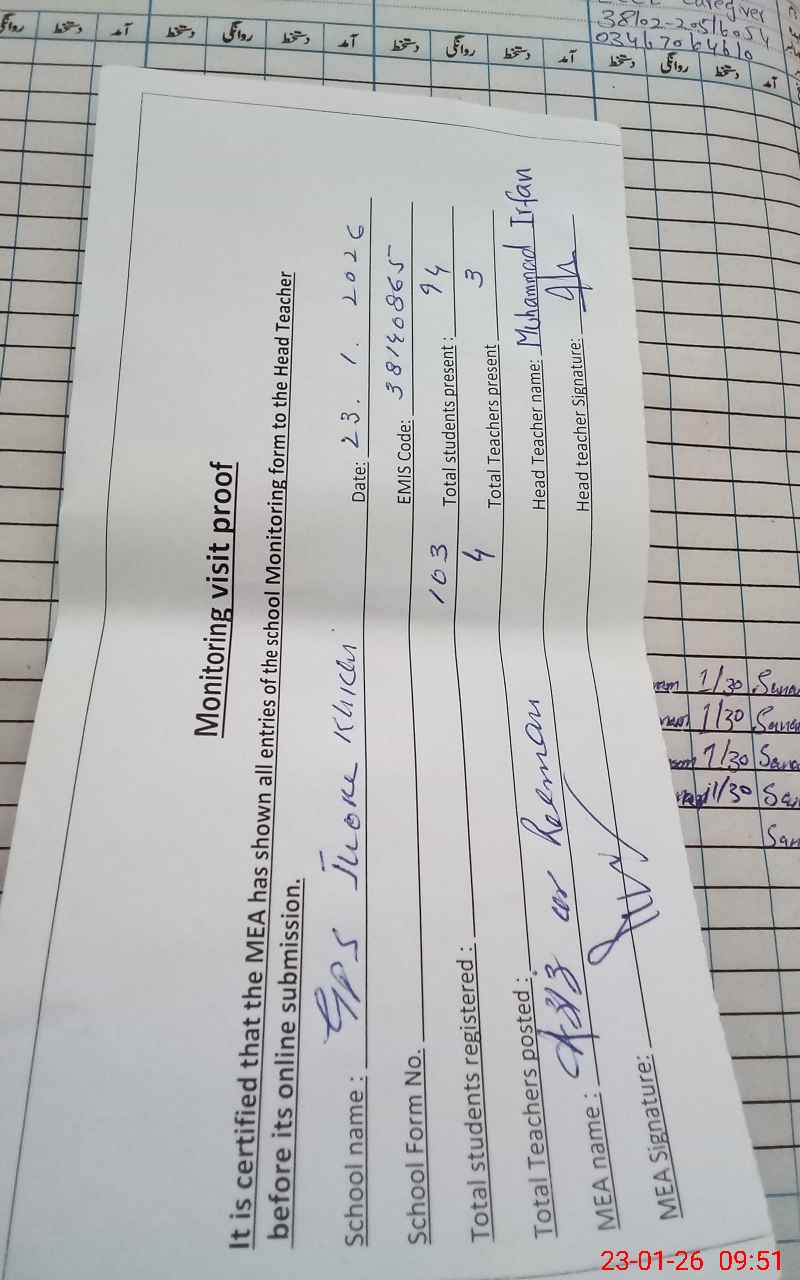 Caregiver
38102-20516054
03467064610
روانگی دستخط آمد دستخط روانگی دستخط آمد دستخط روانگی دستخط آمد دستخط روانگی دستخط آمد
Monitoring visit proof
It is certified that the MEA has shown all entries of the school Monitoring form to the Head Teacher
before its online submission.
School name : GPS Jhoke Khichi Date: 23. 1. 2026
School Form No. EMIS Code: 38140865
Total students registered : 103 Total students present : 94
Total Teachers posted : 4 Total Teachers present 3
MEA name : Aziz ur Rehman Head Teacher name: Muhammad Irfan
MEA Signature: Head teacher Signature:
1/30
1/30
1/30
1/30
23-01-26 09:51